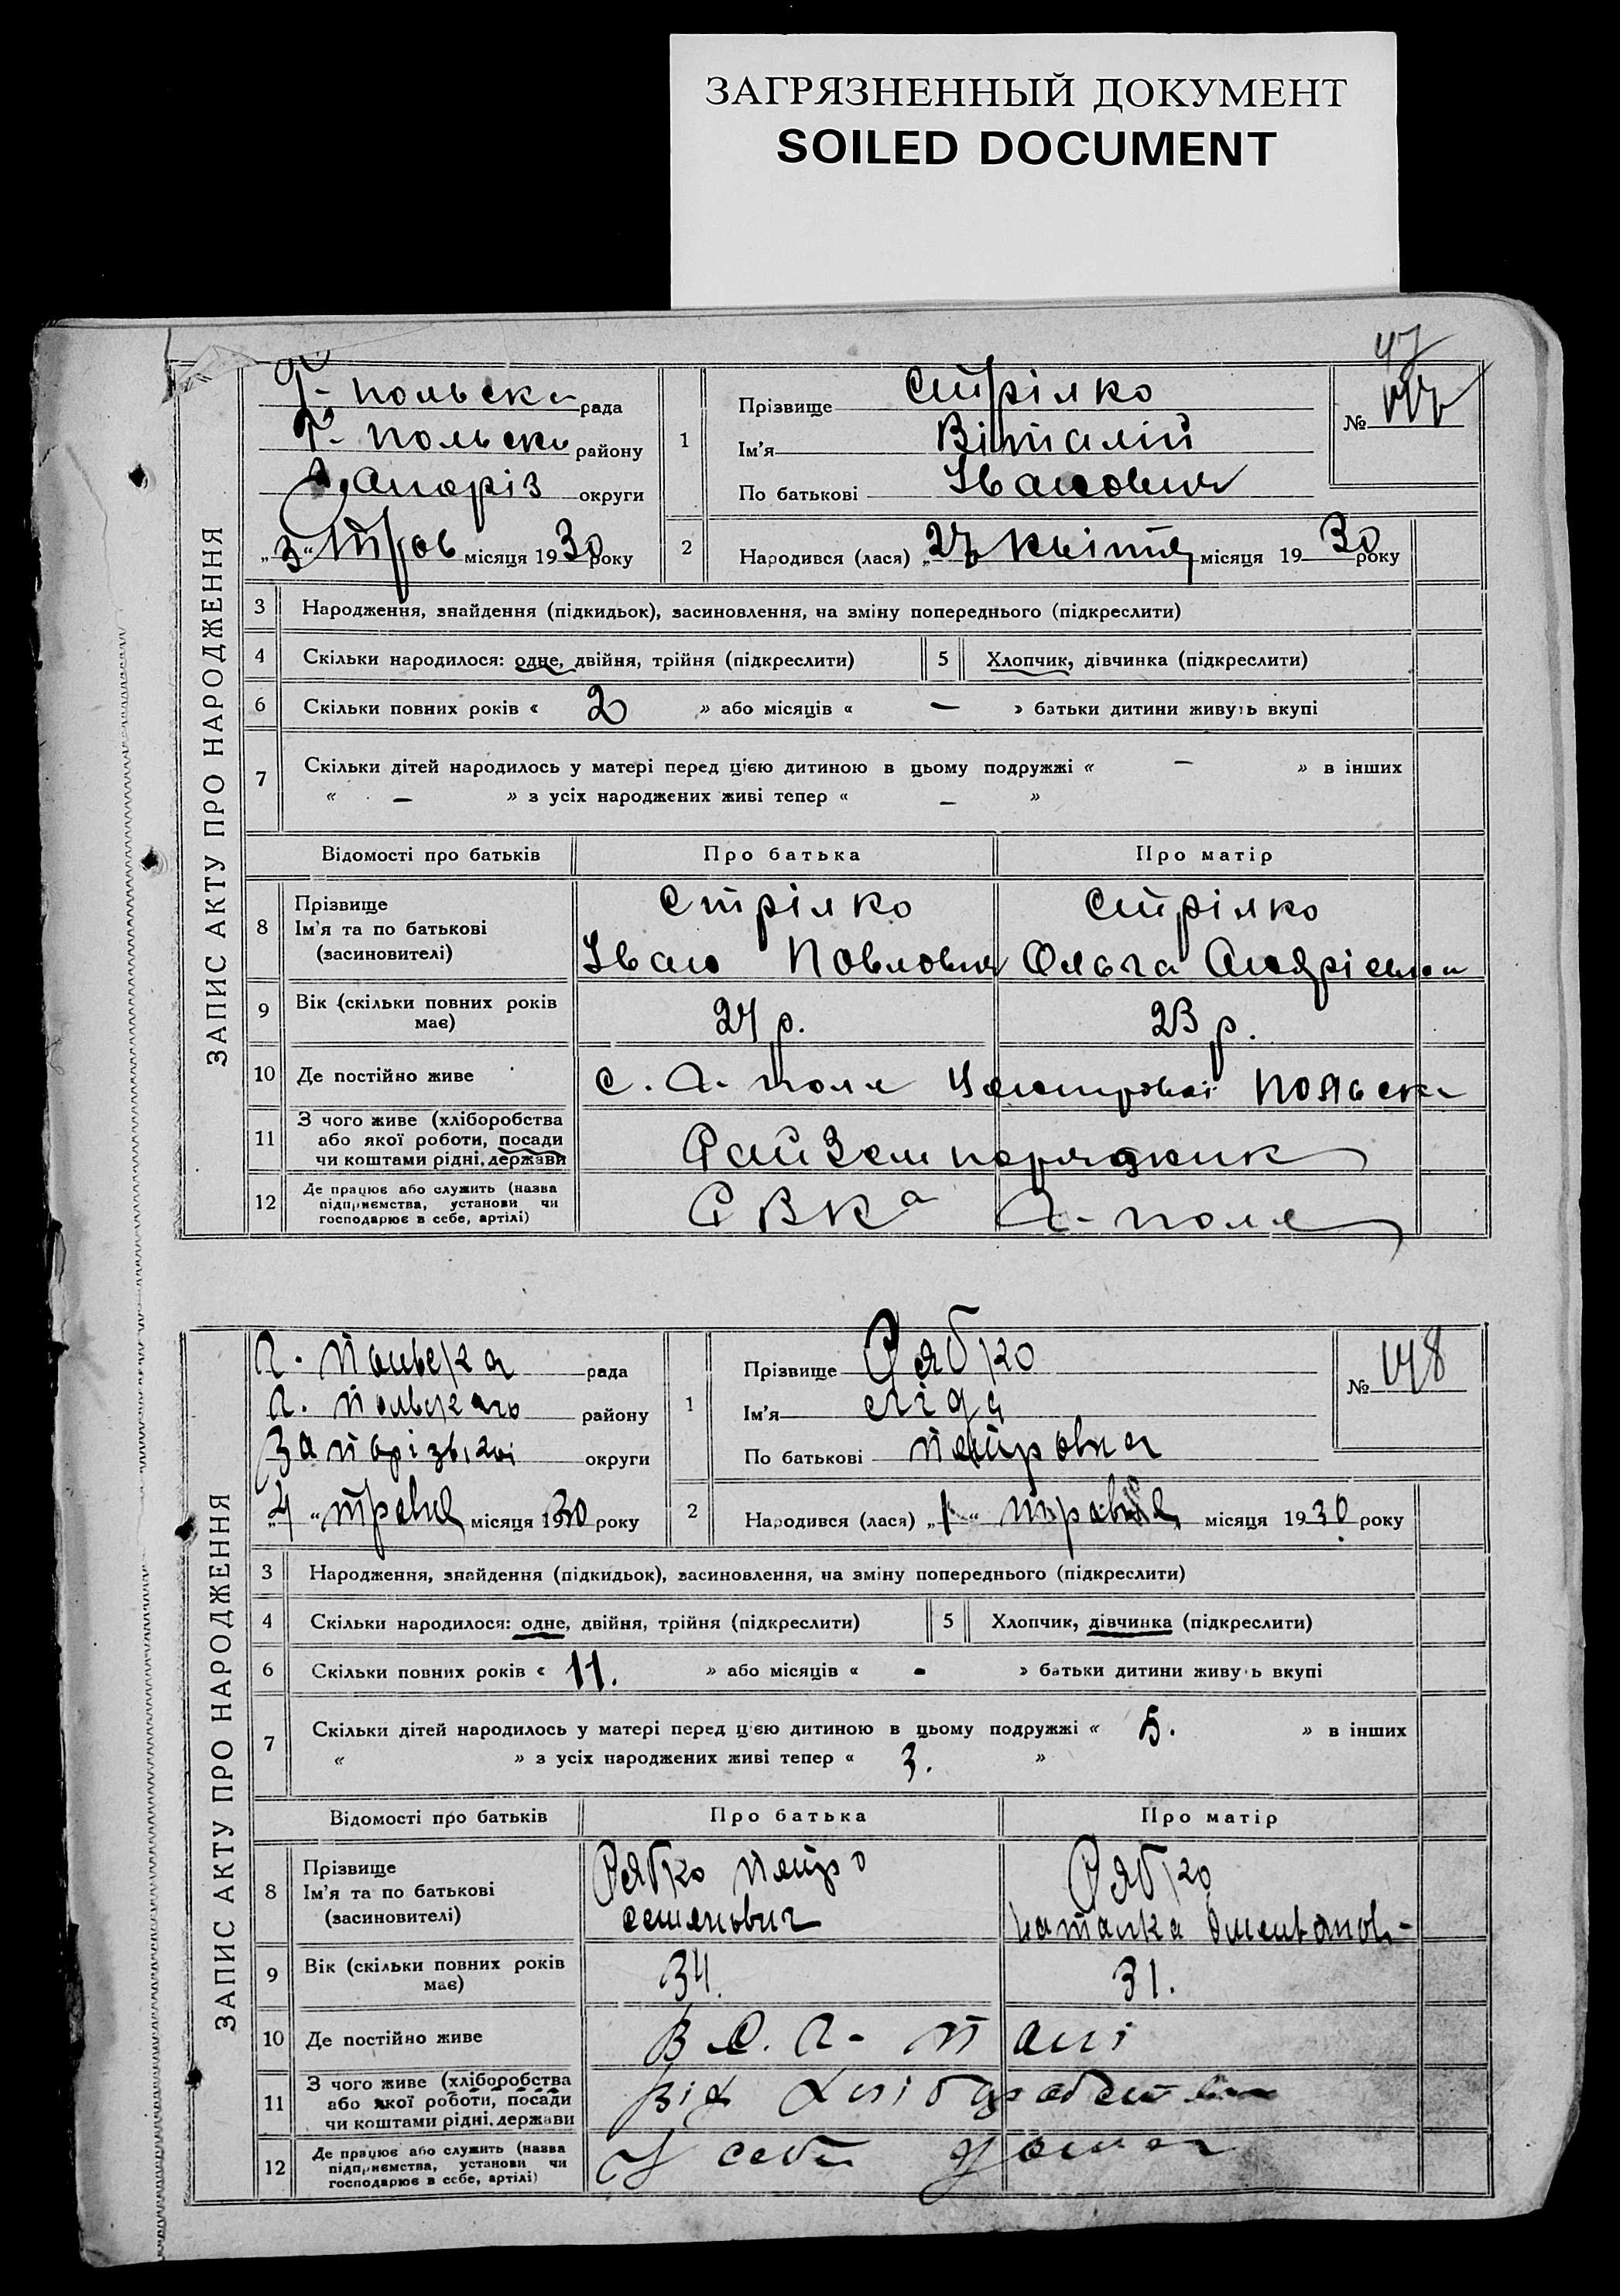 ЗАГРЯЗНЕННЫЙ ДОКУМЕНТ
SOILED DOCUMENT
ЗАПИС АКТУ ПРО НАРОДЖЕННЯ
Г- польска рада
Г- польськ району
Запоріз округи
„3“ Трав місяця 1930 року
1
Прізвище Стрілко
Ім'я Віталій
По батькові Іванович
47
№
2
Народився (лася) „27 квітня місяця 1930 року
3 Народження, знайдення (підкидьок), засиновлення, на зміну попереднього (підкреслити)
4 Скільки народилося: одне, двійня, трійня (підкреслити)
5 Хлопчик, дівчинка (підкреслити)
6 Скільки повних років « 2 » або місяців « — » батьки дитини живуть вкупі
7 Скільки дітей народилось у матері перед цією дитиною в цьому подружжі « — » в інших
« — » з усіх народжених живі тепер « — »
Відомості про батьків Про батька Про матір
8 Прізвище
Ім'я та по батькові
(засиновителі)
Стрілко
Іван Павлович
Стрілко
Ольга Андрієвна
9 Вік (скільки повних років має)
24 р. 23 р.
10 Де постійно живе
с. Г- поле польск
11 З чого живе (хліборобства
або якої роботи, посади
чи коштами рідні, держави
РайЗемпорядник
12 Де працює або служить (назва
підприємства, установи чи
господарює в себе, артілі)
РВКа Г- поле
ЗАПИС АКТУ ПРО НАРОДЖЕННЯ
Г. Польська рада
Г. Польского району
Запорізької округи
„4“ травня місяця 1930 року
1
Прізвище Рябко
Ім'я Ліда
По батькові Петровна
№ 148
2
Народився (лася) „1“ травня місяця 1930 року
3 Народження, знайдення (підкидьок), засиновлення, на зміну попереднього (підкреслити)
4 Скільки народилося: одне, двійня, трійня (підкреслити)
5 Хлопчик, дівчинка (підкреслити)
6 Скільки повних років « 11. » або місяців « - » батьки дитини живуть вкупі
7 Скільки дітей народилось у матері перед цією дитиною в цьому подружжі « 5. » в інших
« » з усіх народжених живі тепер « 3. »
Відомості про батьків Про батька Про матір
8 Прізвище
Ім'я та по батькові
(засиновителі)
Рябко Петро
Семенович
Рябко
Наталка
9 Вік (скільки повних років має)
34. 31.
10 Де постійно живе
в с. Г- Полі
11 З чого живе (хліборобства
або якої роботи, посади
чи коштами рідні, держави
від хліборобства
12 Де працює або служить (назва
підприємства, установи чи
господарює в себе, артілі)
У себе дома